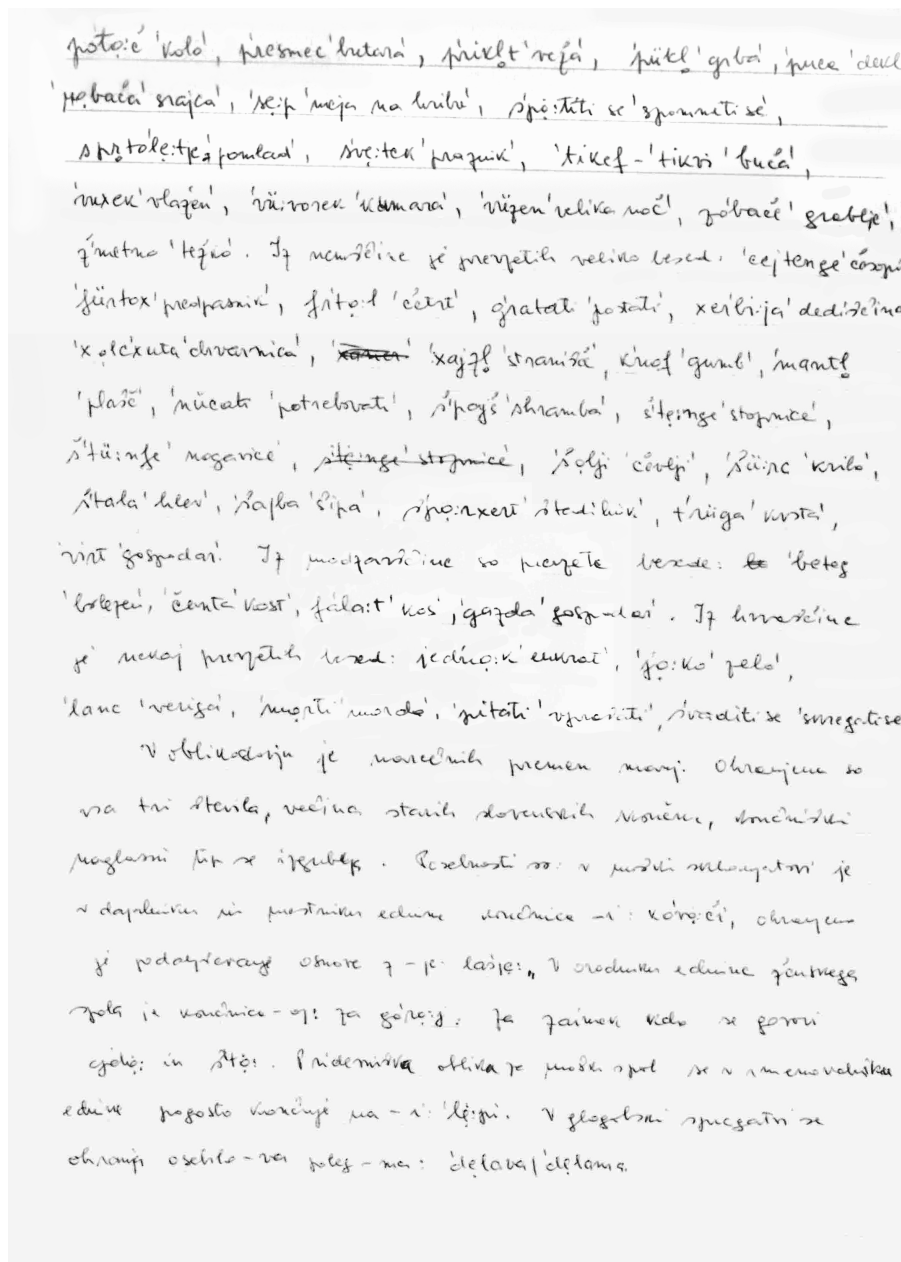 potoːč 'kolo', presmec 'butara', prikl̥t 'veža', pükl̥ 'grba', puca 'dekl
robača 'srajca', 'seːp 'meja na hribu', spoːtiti se 'spomniti se',
sprtoleːtje 'pomlad', sveːtek 'praznik', 'tikef – 'tikvi 'buča',
'vuxek 'vlažen', 'vüːvorek 'kumara', 'vüzen 'velika noč', zobače 'grablje',
žmetno 'težko'. Iz nemščine je prevzetih veliko besed: 'cejtenge časopi
fürtox 'predpasnik', frtoːl 'četrt', gratati 'postati', xerbiːja 'dediščina
'xolcxuta 'drvarnica', 'xajzl̥ 'stranišče', knof 'gumb', mantl̥
'plašč', nücati 'potrebovati', špajš 'shramba', šteːnge 'stopnice',
štüːnfe 'nogavice', šteːnge 'stopnice', 'šolji 'čevlji', 'šüːrc 'krilo',
štala 'hlev', 'šajba 'šipa', špoːrxert 'štedilnik', trüga 'krsta',
virt 'gospodar'. Iz madžarščine so prevzete besede: 'beteg
'bolezen', 'čonta 'kost', falaːt 'kos', gazda 'gospodar'. Iz hrvaščine
je nekaj prevzetih besed: jednoːk 'enkrat', 'jaːko 'zelo',
'lanc 'veriga', 'morti 'morda', 'pitati 'vprašati', svaditi se 'skregati se
V oblikoslovju je narečnih premen manj. Ohranjena so
vsa tri števila, večina starih slovenskih končnic, končniški
naglasni tip se izgublja. Posebnosti so: v moški sklanjatvi je
v dajalniku in mestniku ednine končnica -i: kovaːči, ohranjeno
je podaljševanje osnove z -j-: lasje:, V orodniku ednine ženskega
spola je končnica -oj: za goroːj. Za zaimek kdo se govori
in što:. Pridevniška oblika za moški spol se v imenovalniku
ednine pogosto končuje na -i: 'leːpi. V glagolski spregatvi se
ohranja osebilo -va poleg -ma: 'delava/'delama.